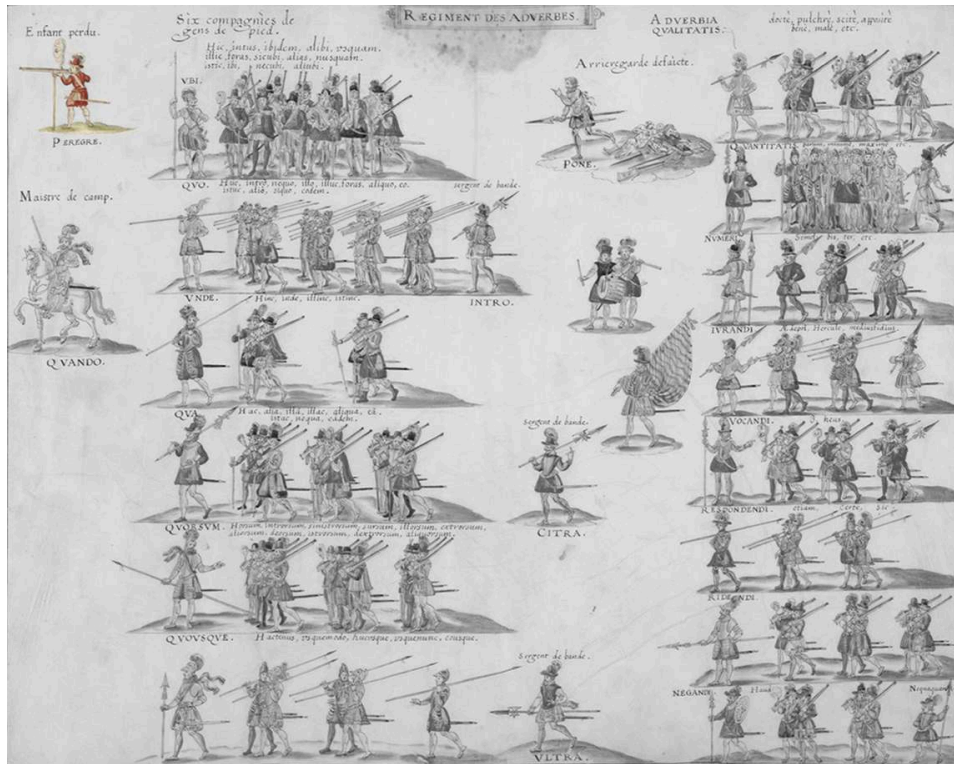 RÆGIMENT DES ADVERBES.
Enfant perdu.
PEREGRE.
Maistre de camp.
QVANDO.
Six compagnies de
gens de pied.
Hic, intus, ibidem, alibi, vsquam.
illic, foras, sicubi, alias, nusquam.
istic, ibi, necubi, alicubi.
VBI.
QVO. Huc, intro, nequo, illo, illuc, foras, aliquo, eo.
istuc, aliò, siquo, eodem.
sergent de bande.
VNDE. Hinc, inde, illinc, istinc.
INTRO.
QVA. Hac, alia, illâ, illac, aliqua, eâ.
istac, nequa, eadem.
QVORSVM. Horsum, introrsum, sinistrorsum, sursum, illorsum, extrorsum,
aliorsum, deorsum, istrorsum, dextrorsum, aliquorsum.
QVOVSQVE. Hactenus, vsquemodo, hucvsque, vsquenunc, eousque.
Arrieregarde defaicte.
PONE.
Sergent de bande.
CITRA.
Sergent de bande.
VLTRA.
ADVERBIA
QVALITATIS.
doctè, pulchrè, scitè, appositè
benè, malè, etc.
QVANTITATIS. parum, minimè, maximè etc.
NVMERI. Semel, bis, ter, etc.
IVRANDI. Ædepol, Hercule, mediusfidius.
VOCANDI. heus.
RESPONDENDI. etiam, Certe, Sic.
RIDENDI.
NEGANDI. Haud
Nequaquam